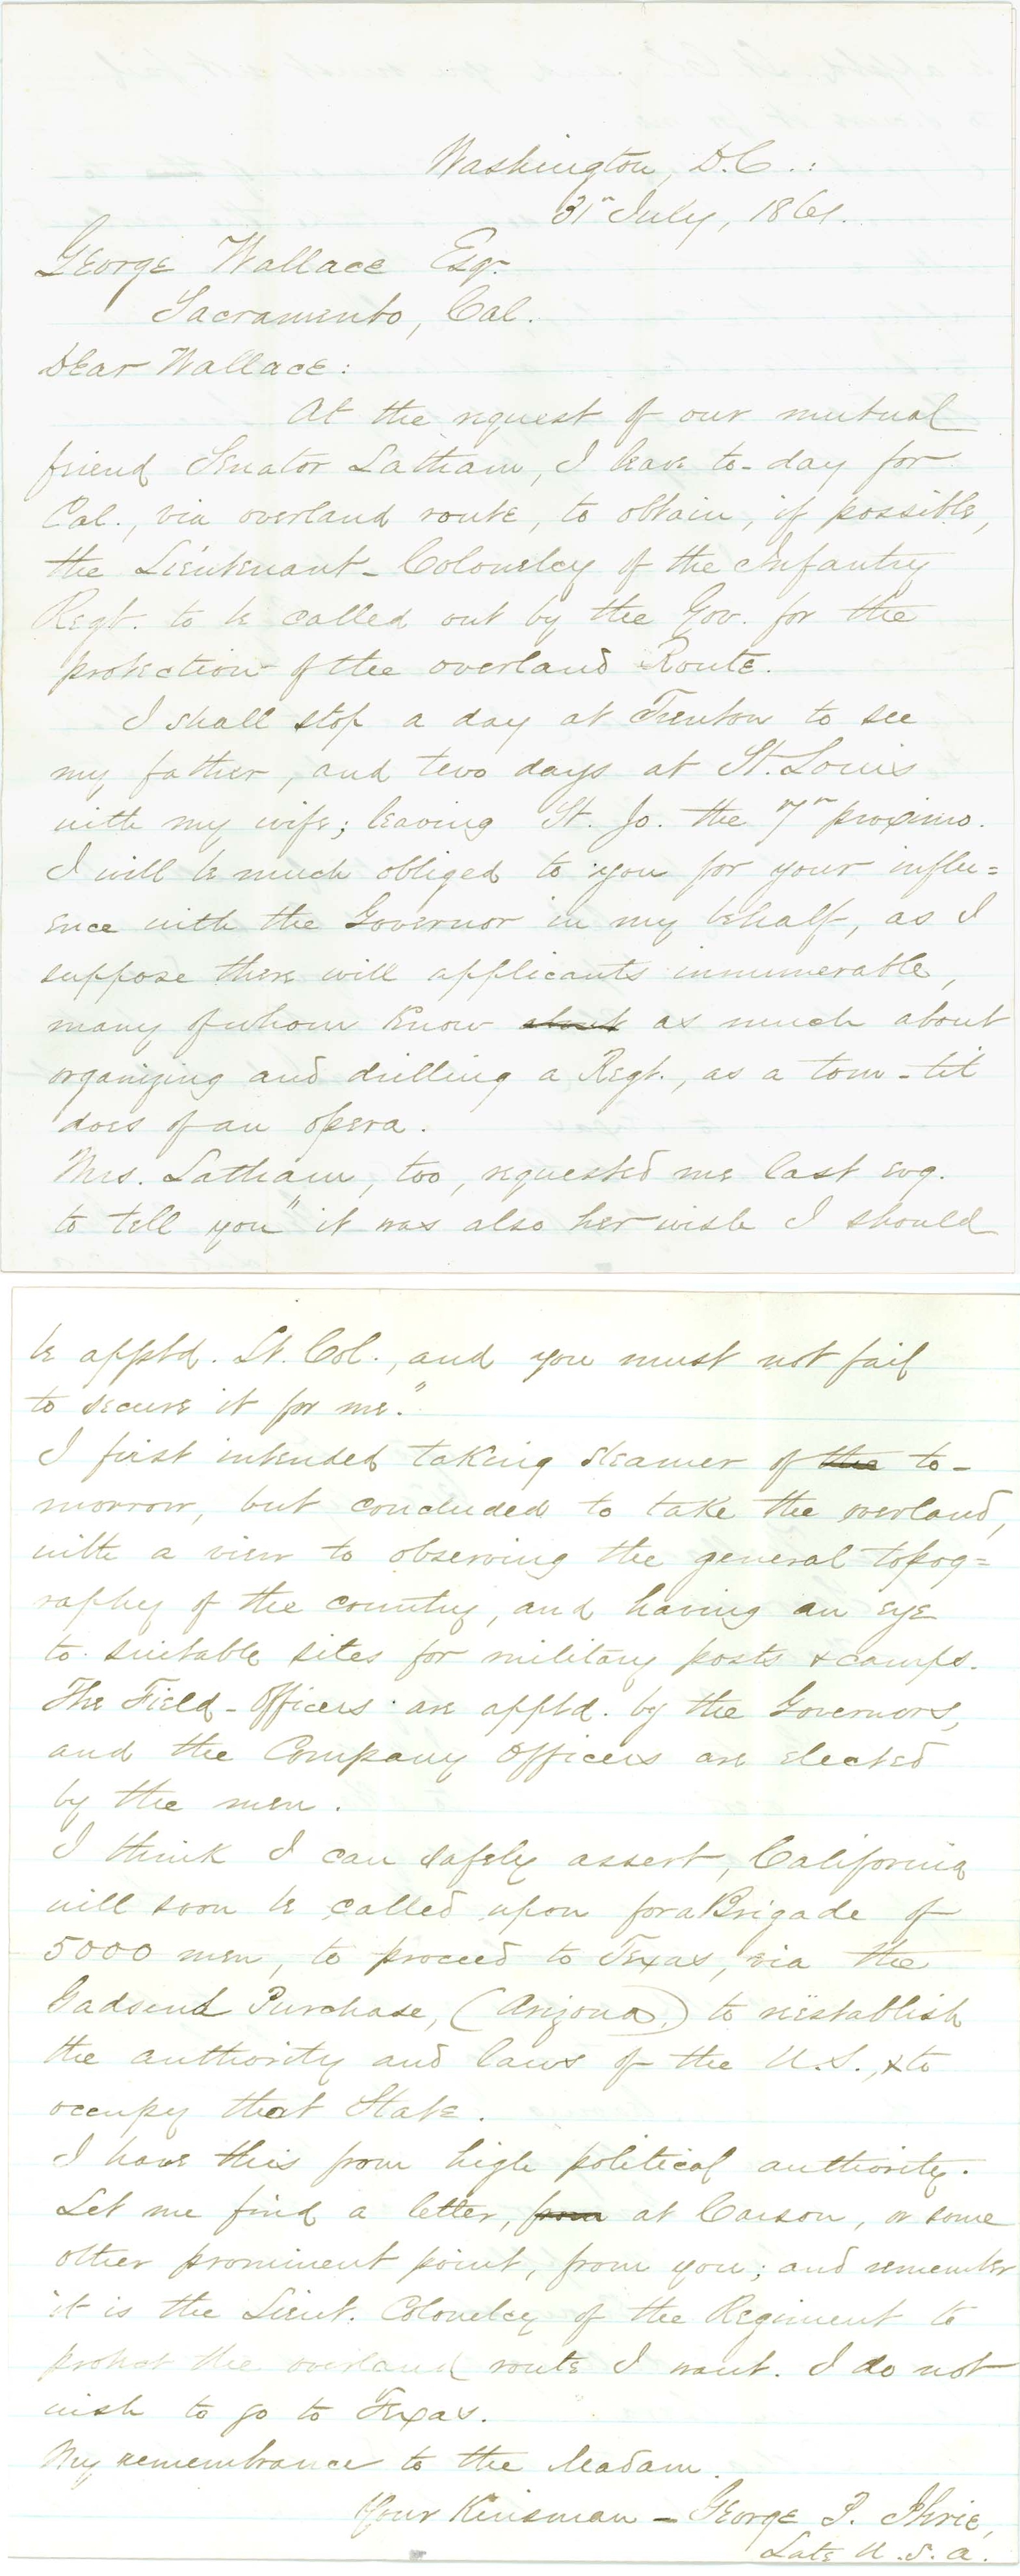 Washington, D.C.:
31st July, 1861.
George Wallace Esqr.
Sacramento, Cal.
Dear Wallace:
At the request of our mutual
friend Senator Latham, I leave to-day for
Cal., via overland route, to obtain, if possible,
the Lieutenant-Colonelcy of the Infantry
Regt. to be called out by the Gov. for the
protection of the overland Route.
I shall stop a day at Trenton to see
my father, and two days at St. Louis
with my wife; leaving St. Jo. the 7th proximo.
I will be much obliged to you for your influ=
ence with the Governor in my behalf, as I
suppose there will applicants innumerable,
many of whom know about as much about
organizing and drilling a Regt., as a tom-tit
does of an opera.
Mrs. Latham, too, requested me last evg.
to tell you "it was also her wish I should
be apptd. Lt. Col., and you must not fail
to secure it for me."
I first intended taking steamer of the to-
morrow, but concluded to take the overland,
with a view to observing the general topog=
raphy of the country, and having an eye
to suitable sites for military posts & camps.
The Field-Officers are apptd. by the Governors,
and the Company Officers are elected
by the men.
I think I can safely assert, California
will soon be called upon for a Brigade of
5000 men, to proceed to Texas, via the
Gadsend Purchase, (Arizona,) to reëstablish
the authority and laws of the U.S., & to
occupy that State.
I have this from high political authority.
Let me find a letter, from at Carson, or some
other prominent point, from you; and remember
it is the Lieut. Colonelcy of the Regiment to
protect the overland route I want. I do not
wish to go to Texas.
My remembrance to the Madam.
Your Kinsman - George P. Ihrie,
Late U.S.A.